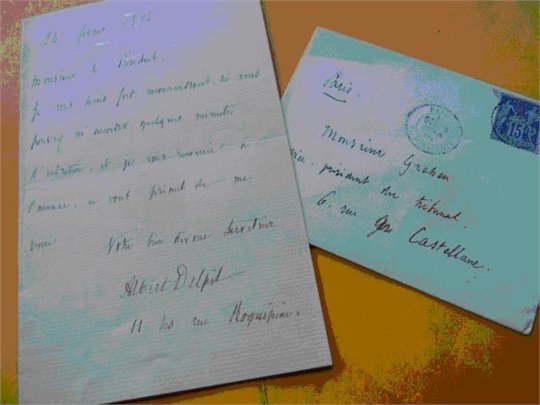 24 février 188
Monsieur le Président,
Je vous serais fort reconnaissant, si vous
pouvez m'accorder quelques minutes
d'entretien, et je vous remercie à
l'avance, en vous priant de me
croire
Votre bien dévoué serviteur
Albert Delpit
11 bis rue Roquépine.
Paris.
Monsieur Gréhen
vice-président du tribunal
6. rue Castellane.
15